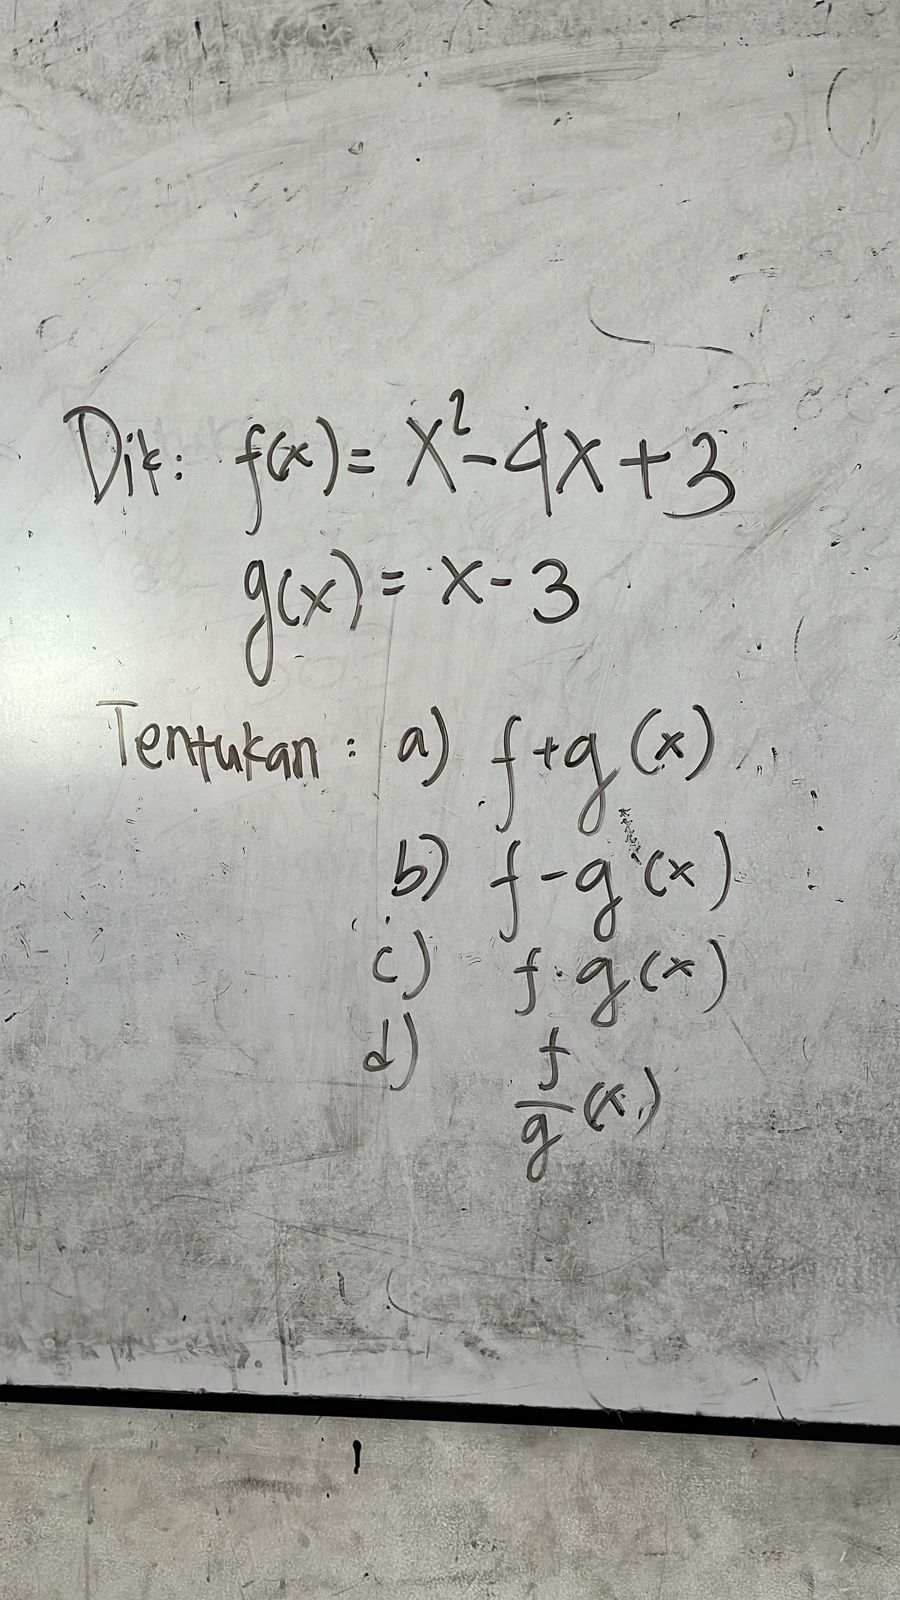 Dik: f(x) = x² - 4x + 3
g(x) = x - 3
Tentukan : a) f + g (x)
b) f - g (x)
c) f . g (x)
d) f/g (x)